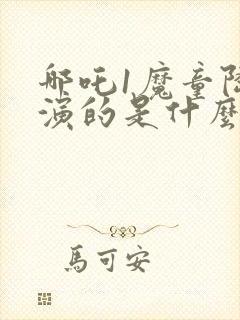 哪吒1魔童降
演的是什麼
馬可安